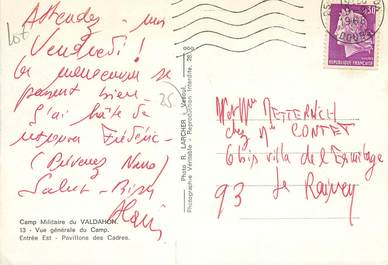 Attendez moi
Vendredi !
les manoeuvres se
passent bien
J'ai hâte de
retrouver Frédéric -
(Prévenez Nano)
Salut - Bises
Alain
Lot
25
Camp Militaire du VALDAHON.
13 - Vue générale du Camp.
Entrée Est - Pavillons des Cadres.
Photo R. LARCHER - Vesoul.
Photographie Véritable - Reproduction Interdite.
1968
DOUBS
0,30
REPUBLIQUE FRANÇAISE
METTERNICH
chez Mr CONTET
6 bis villa de l'Ermitage
93 Le Raincy